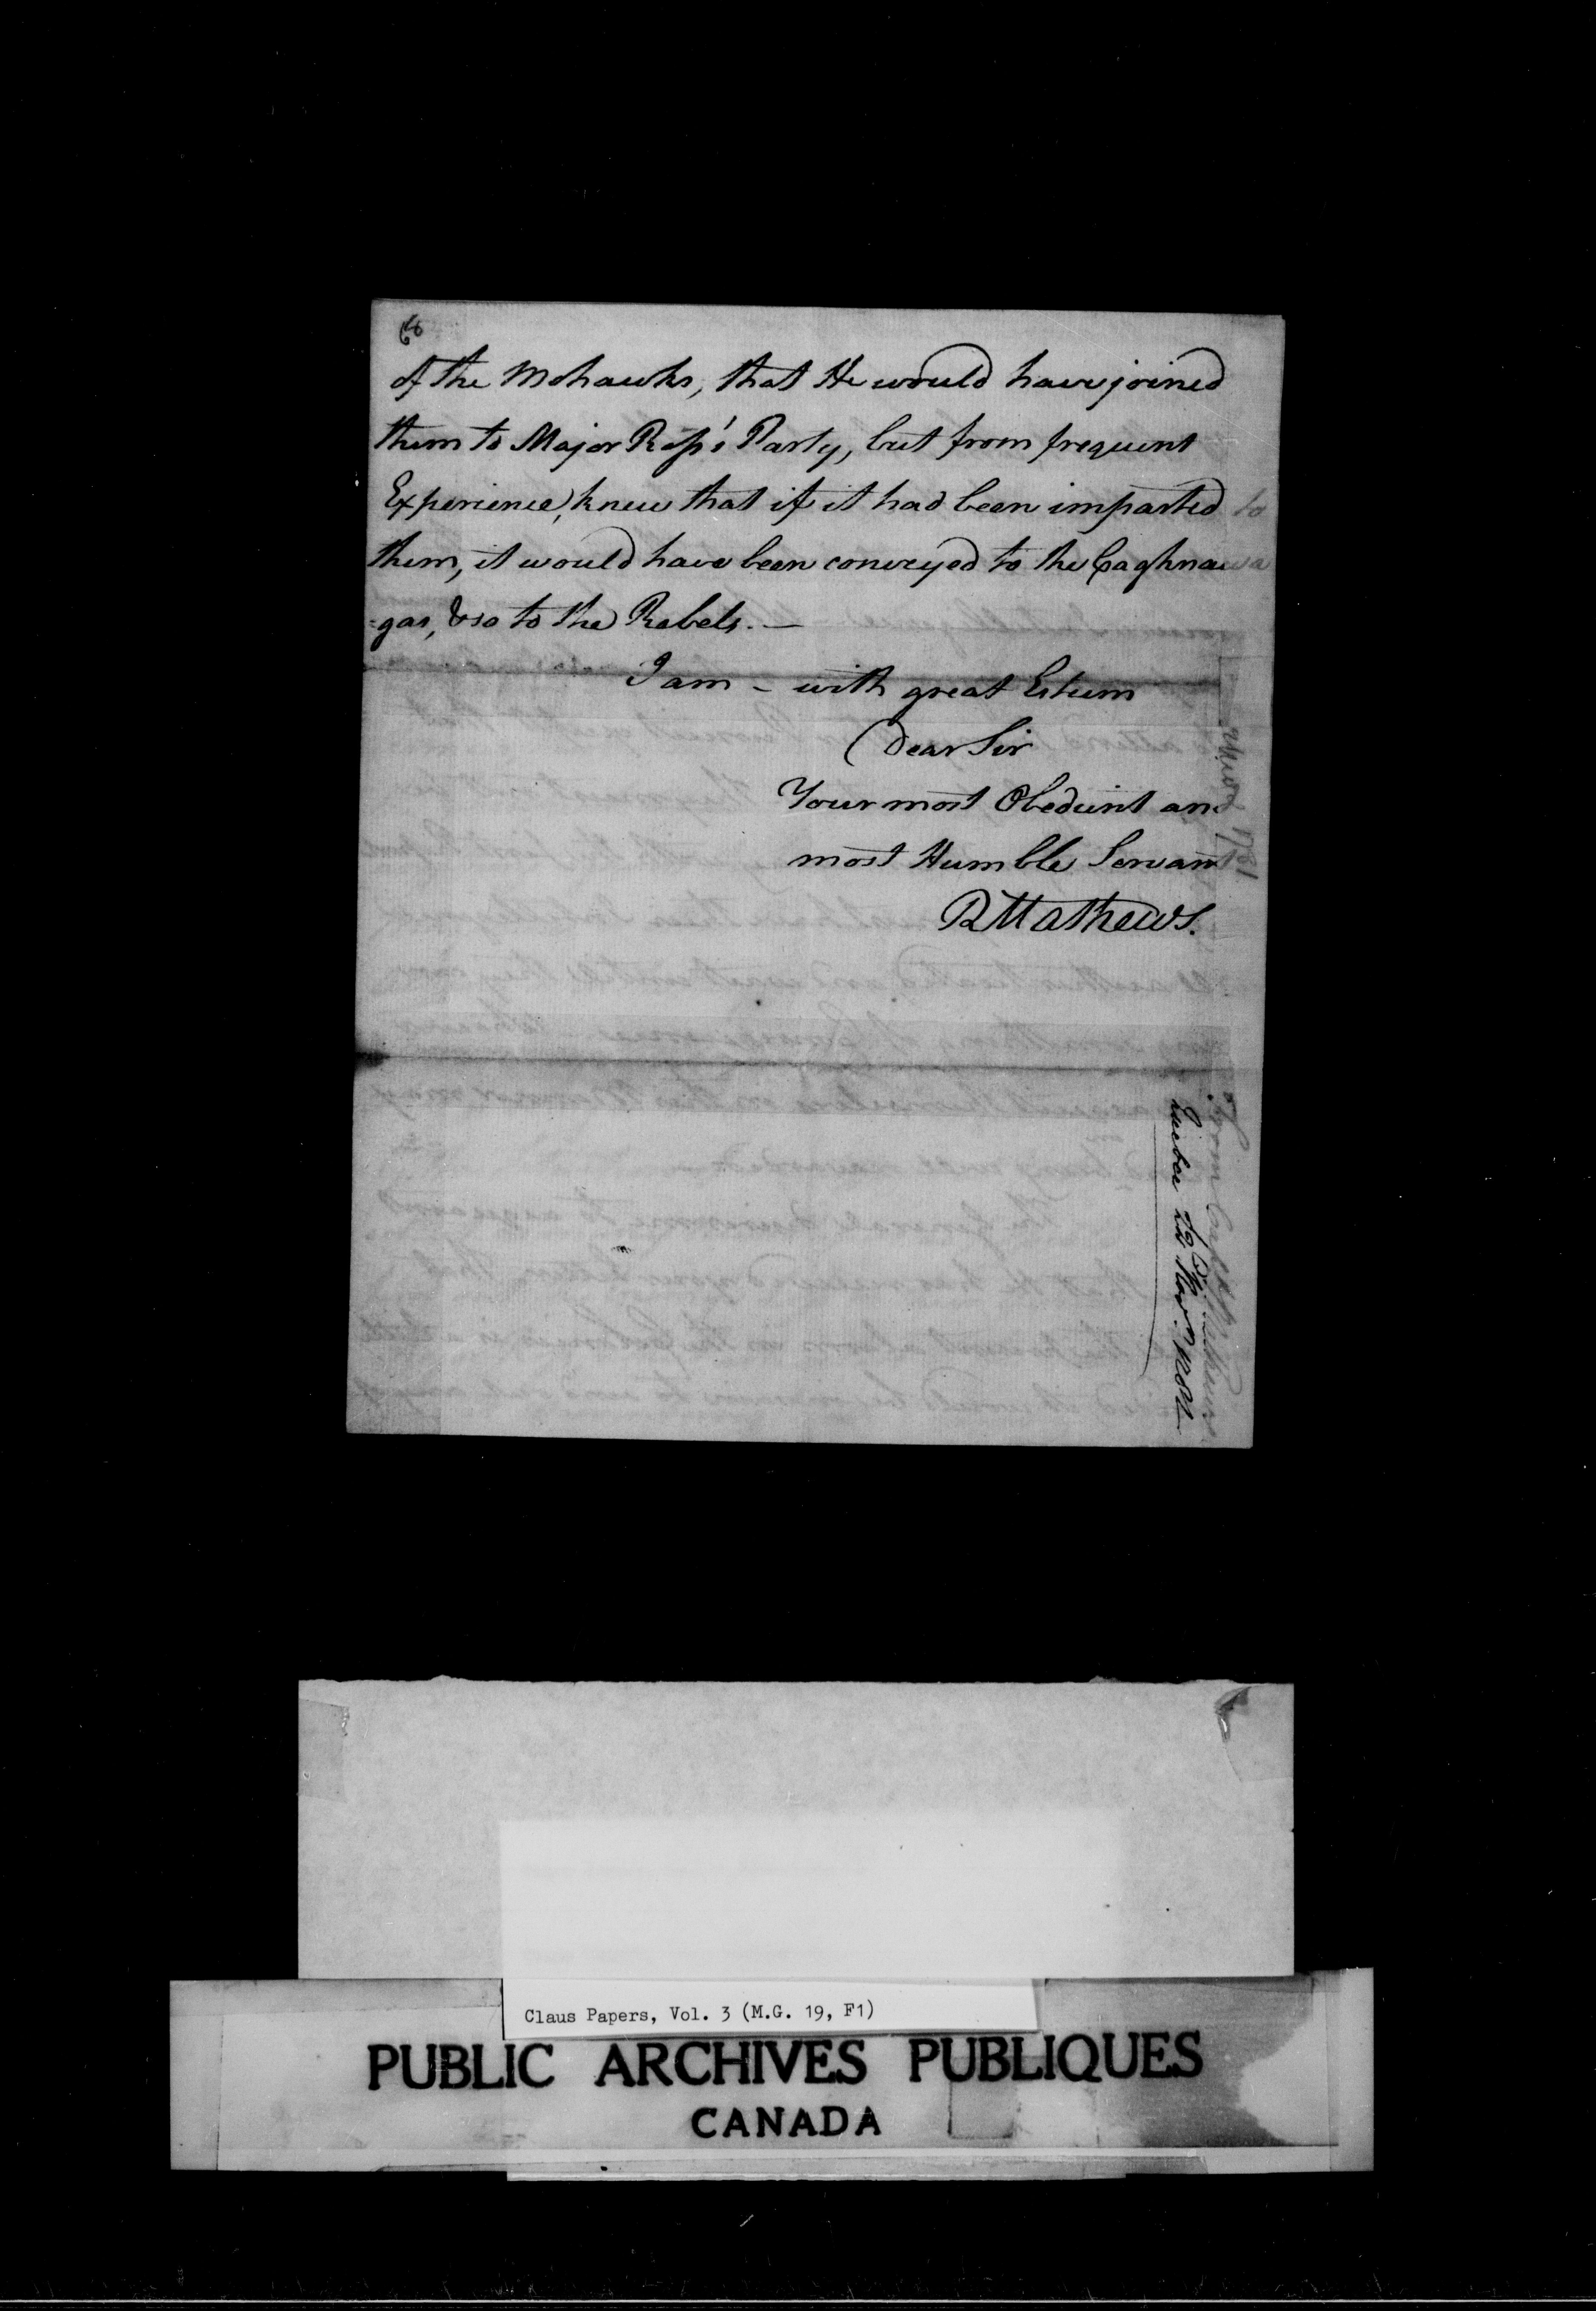 68
of the Mohawks, that He would have joined
them to Major Ross's Party, but from frequent
Experience, knew that if it had been imparted to
them, it would have been conveyed to the Caghnawa
=gas, & so to the Rebels. —
I am – with great Esteem
Dear Sir
Your most Obedient and
most Humble Servant
R Mathews.
1781
From Capt. Mathews
Quebec 22d Nov.
Claus Papers, Vol. 3 (M.G. 19, F1)
PUBLIC ARCHIVES PUBLIQUES
CANADA